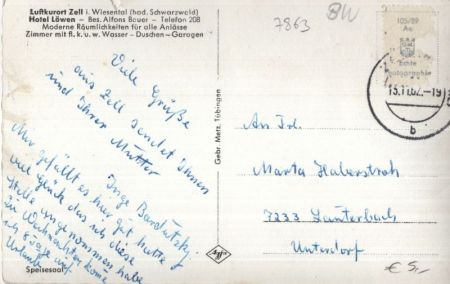 Luftkurort Zell i. Wiesental (bad. Schwarzwald)
Hotel Löwen – Bes. Alfons Bauer – Telefon 208
Moderne Räumlichkeiten für alle Anlässe
Zimmer mit fl. k. u. w. Wasser – Duschen – Garagen
7863
BW
105/89
Ax
Echte
Photographie
15.11.62.-19
b
Viele Grüße
aus Zell sendet Ihnen
und Ihrer Mutter
Inge
Mir gefällt es hier gut hatte
viel Glück das ich diese
Stelle angenommen habe
zu Weihnachten komme
ich in
Urlaub
Speisesaal
Gebr. Metz, Tübingen
An Frl.
Marta Haberstroh
7233 Lauterbach
Unterdorf
€ 5,-